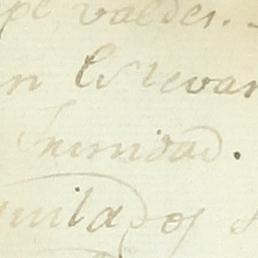 pe valdes.
n Estevan
Trinidad.
quilados